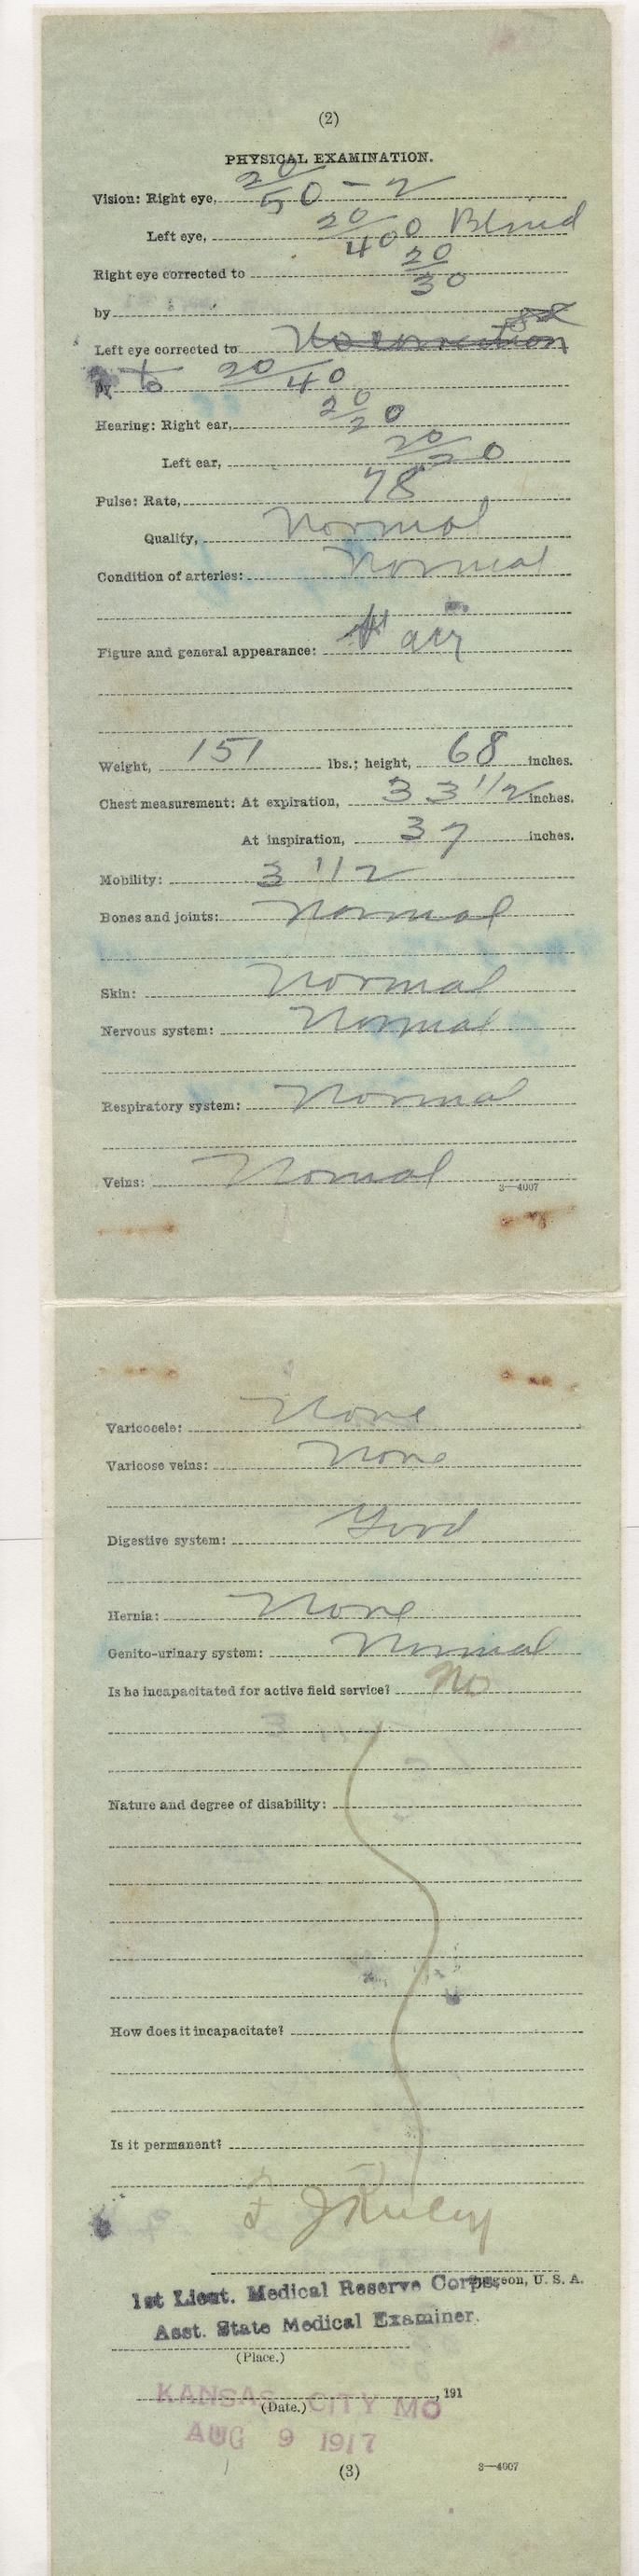 (2)
PHYSICAL EXAMINATION.
Vision: Right eye, 20/50 - 2
Left eye, 20/400 Blind
Right eye corrected to 20/30
by
Left eye corrected to No correction
to 20/40
Hearing: Right ear, 20/20
Left ear, 20/20
Pulse: Rate, 78
Quality, Normal
Condition of arteries: Normal
Figure and general appearance: Fair
Weight, 151 lbs.; height, 68 inches.
Chest measurement: At expiration, 33 1/2 inches.
At inspiration, 37 inches.
Mobility: 3 1/2
Bones and joints: Normal
Skin: Normal
Nervous system: Normal
Respiratory system: Normal
Veins: Normal
3—4007
Varicocele: None
Varicose veins: None
Digestive system: Good
Hernia: None
Genito-urinary system: Normal
Is he incapacitated for active field service? No
Nature and degree of disability:
How does it incapacitate?
Is it permanent?
Surgeon, U. S. A.
1st Lieut. Medical Reserve Corps,
Asst. State Medical Examiner.
(Place.)
KANSAS CITY MO , 191
(Date.)
AUG 9 1917
(3)
3—4007